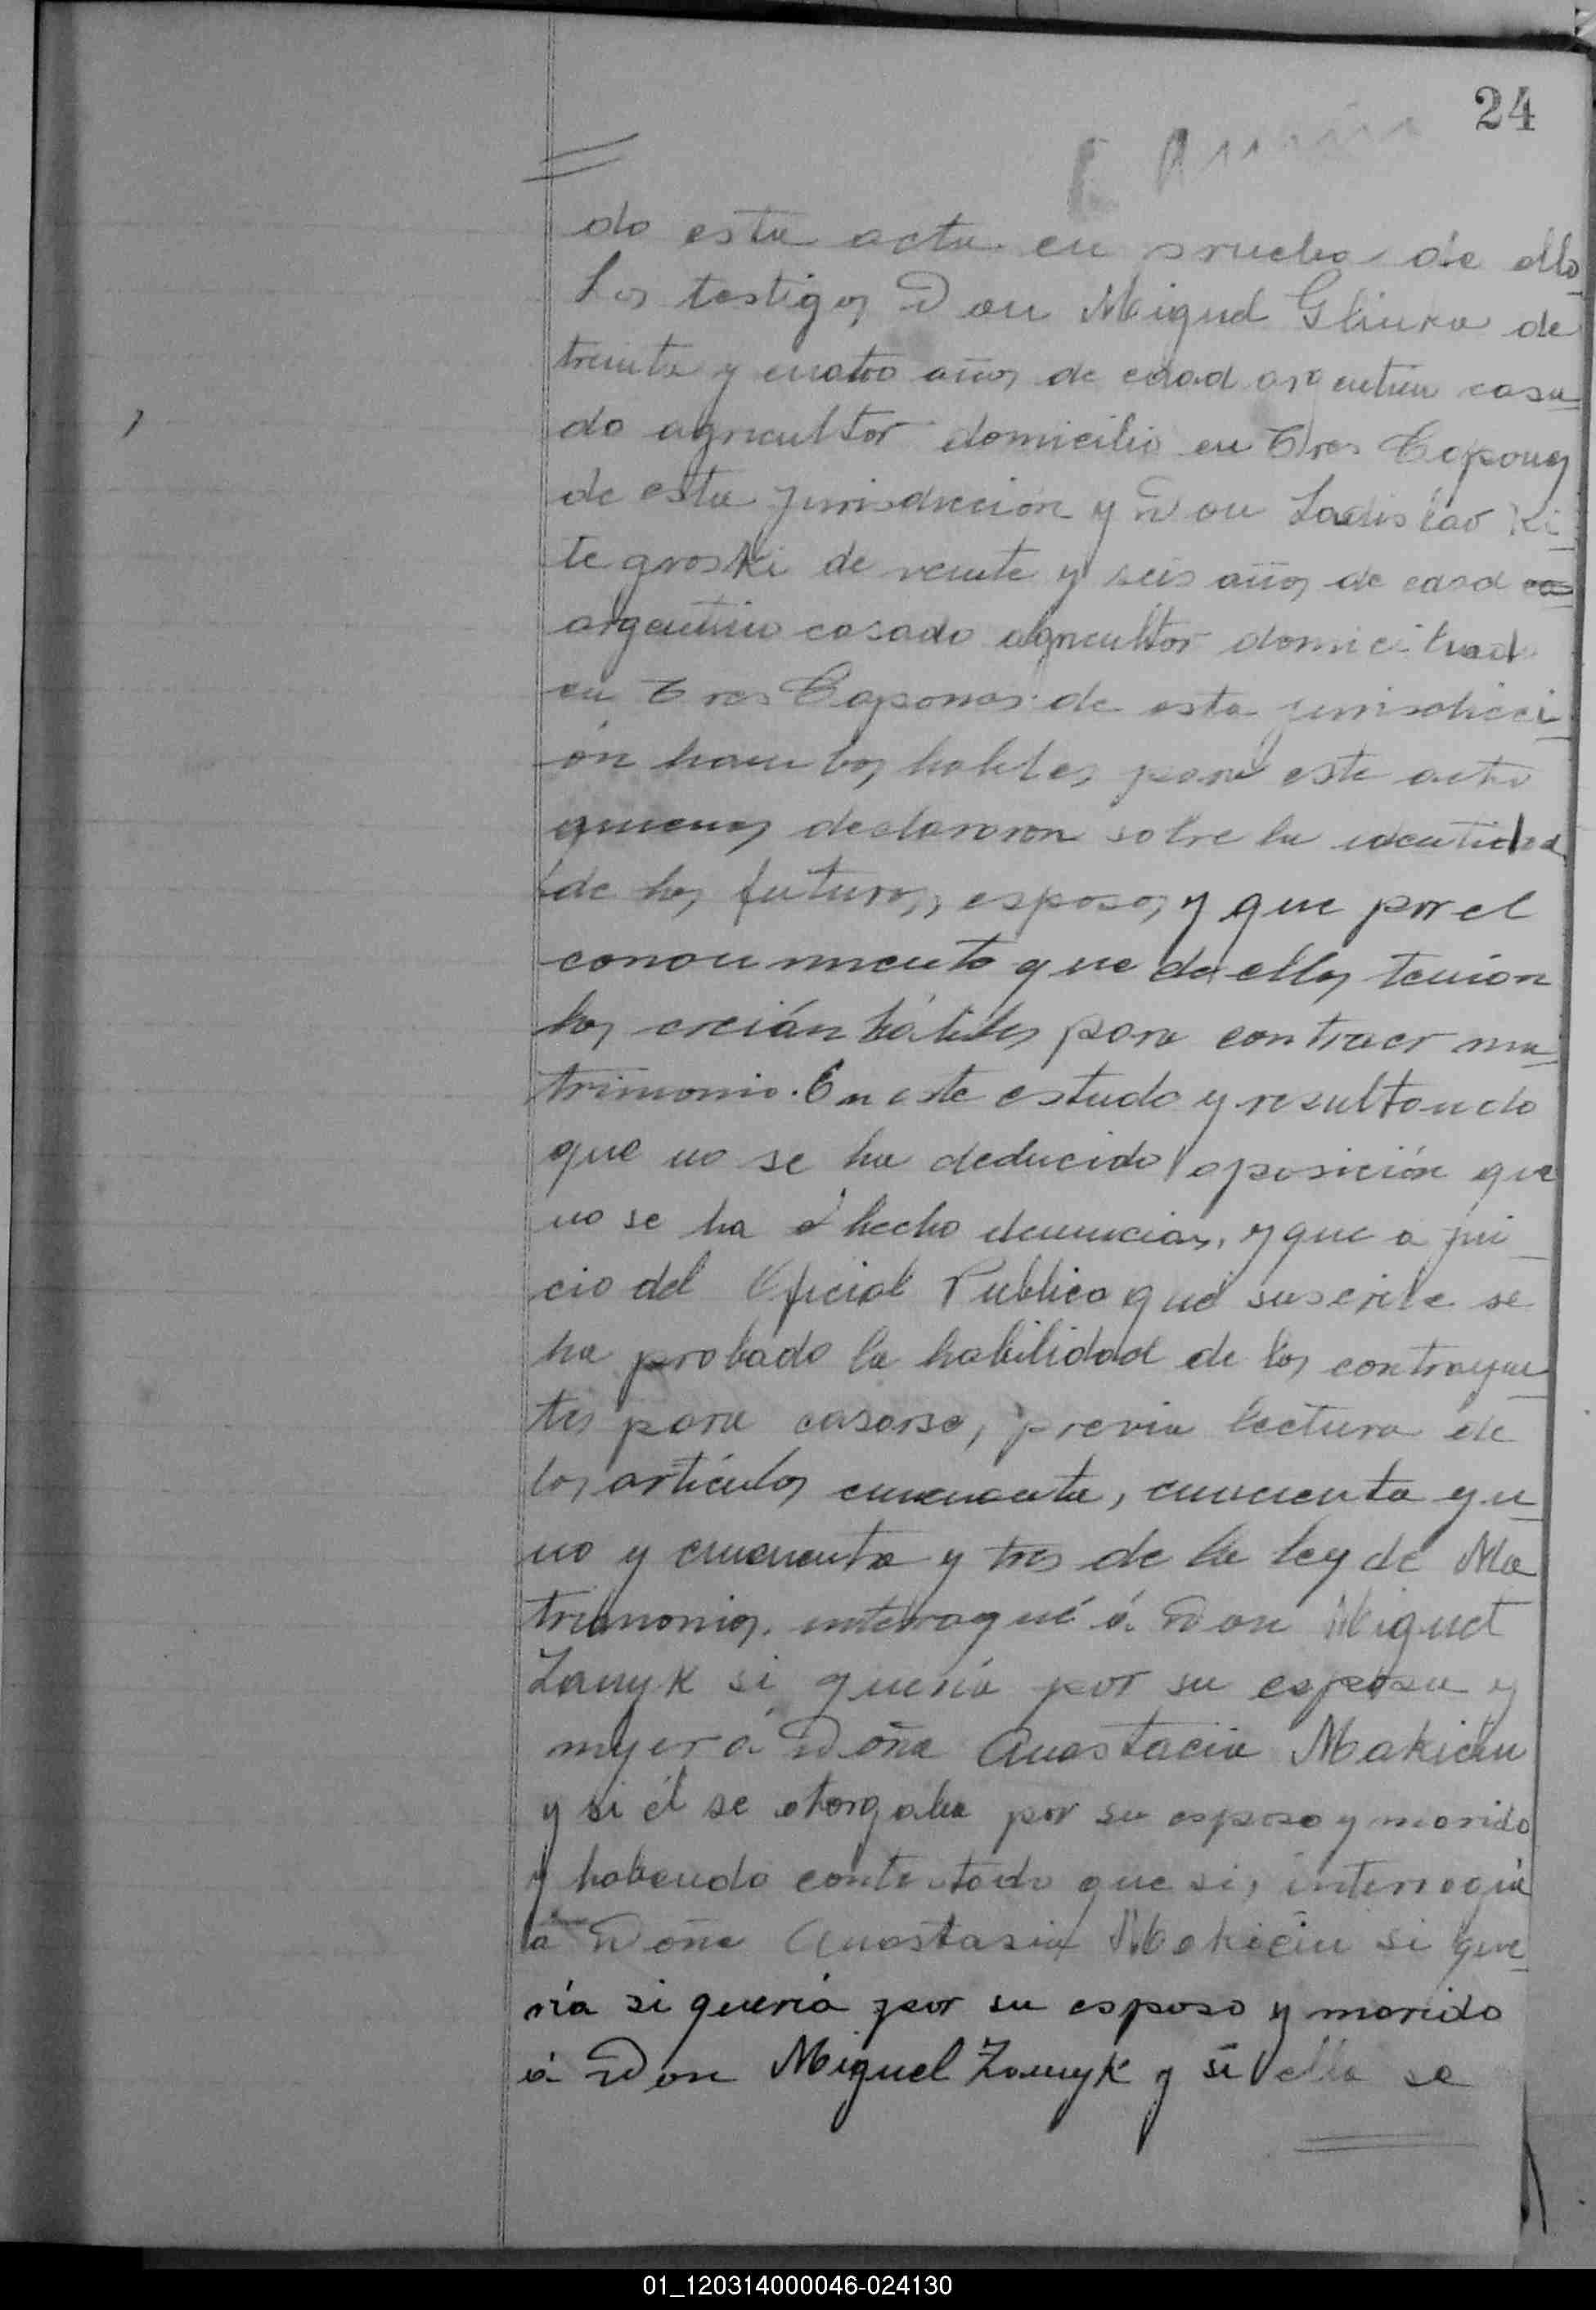 24
do esta acta en prueba de ello
Los testigos Don Miguel Glinka de
treinta y cuatro años de edad argentino casa-
do agricultor domicilio en Tres Capones
de esta jurisdicción y Don Ladislao Ki-
tegroski de veinte y seis años de edad cas
argentino casado agricultor domiciliado
en Tres Capones de esta jurisdicci-
ón hambos habiles para este acto
quienes declararon sobre la identidad
de los futuros, esposos, y que por el
conocimiento que de ellos tenian
los creían hábiles para contraer ma-
trimonio. En este estado y resultando
que no se ha deducido oposición que
no se ha hecho denuncias, y que a jui-
cio del Oficial Publico que suscribe se
ha probado la habilidad de los contrayen-
tes para casarse, previa lectura de
los artículos cincuenta, cincuenta y u-
no y cincuenta y tres de la ley de Ma
trimonios, interrogué á Don Miguel
Zanyk si quería por su esposa y
mujer á Doña Anastacia Makiciu
y si él se otorgaba por su esposo y marido
y habiendo contestado que si, interrogué
á Doña Anastasia Makiciu si que-
ría si quería por su esposo y marido
á Don Miguel Zanyk y si ella se
01_120314000046-024130